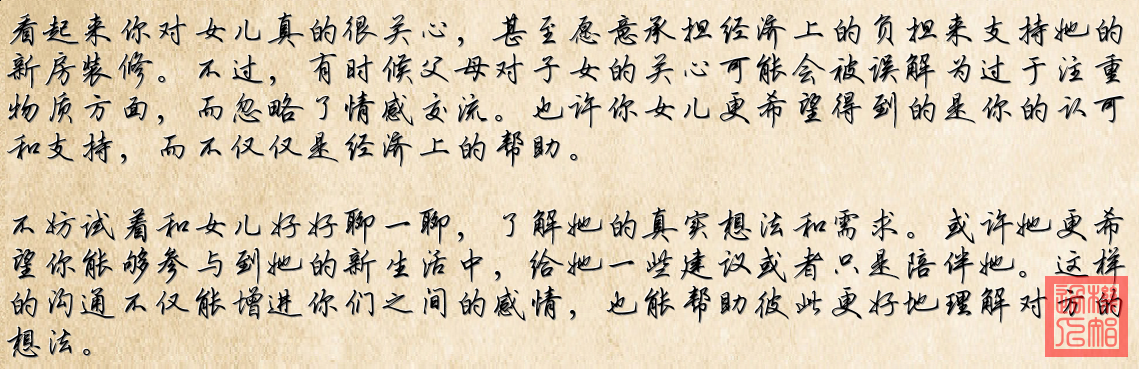 看起来你对女儿真的很关心，甚至愿意承担经济上的负担来支持她的
新房装修。不过，有时候父母对子女的关心可能会被误解为过于注重
物质方面，而忽略了情感交流。也许你女儿更希望得到的是你的认可
和支持，而不仅仅是经济上的帮助。
不妨试着和女儿好好聊一聊，了解她的真实想法和需求。或许她更希
望你能够参与到她的新生活中，给她一些建议或者只是陪伴她。这样
的沟通不仅能增进你们之间的感情，也能帮助彼此更好地理解对方的
想法。